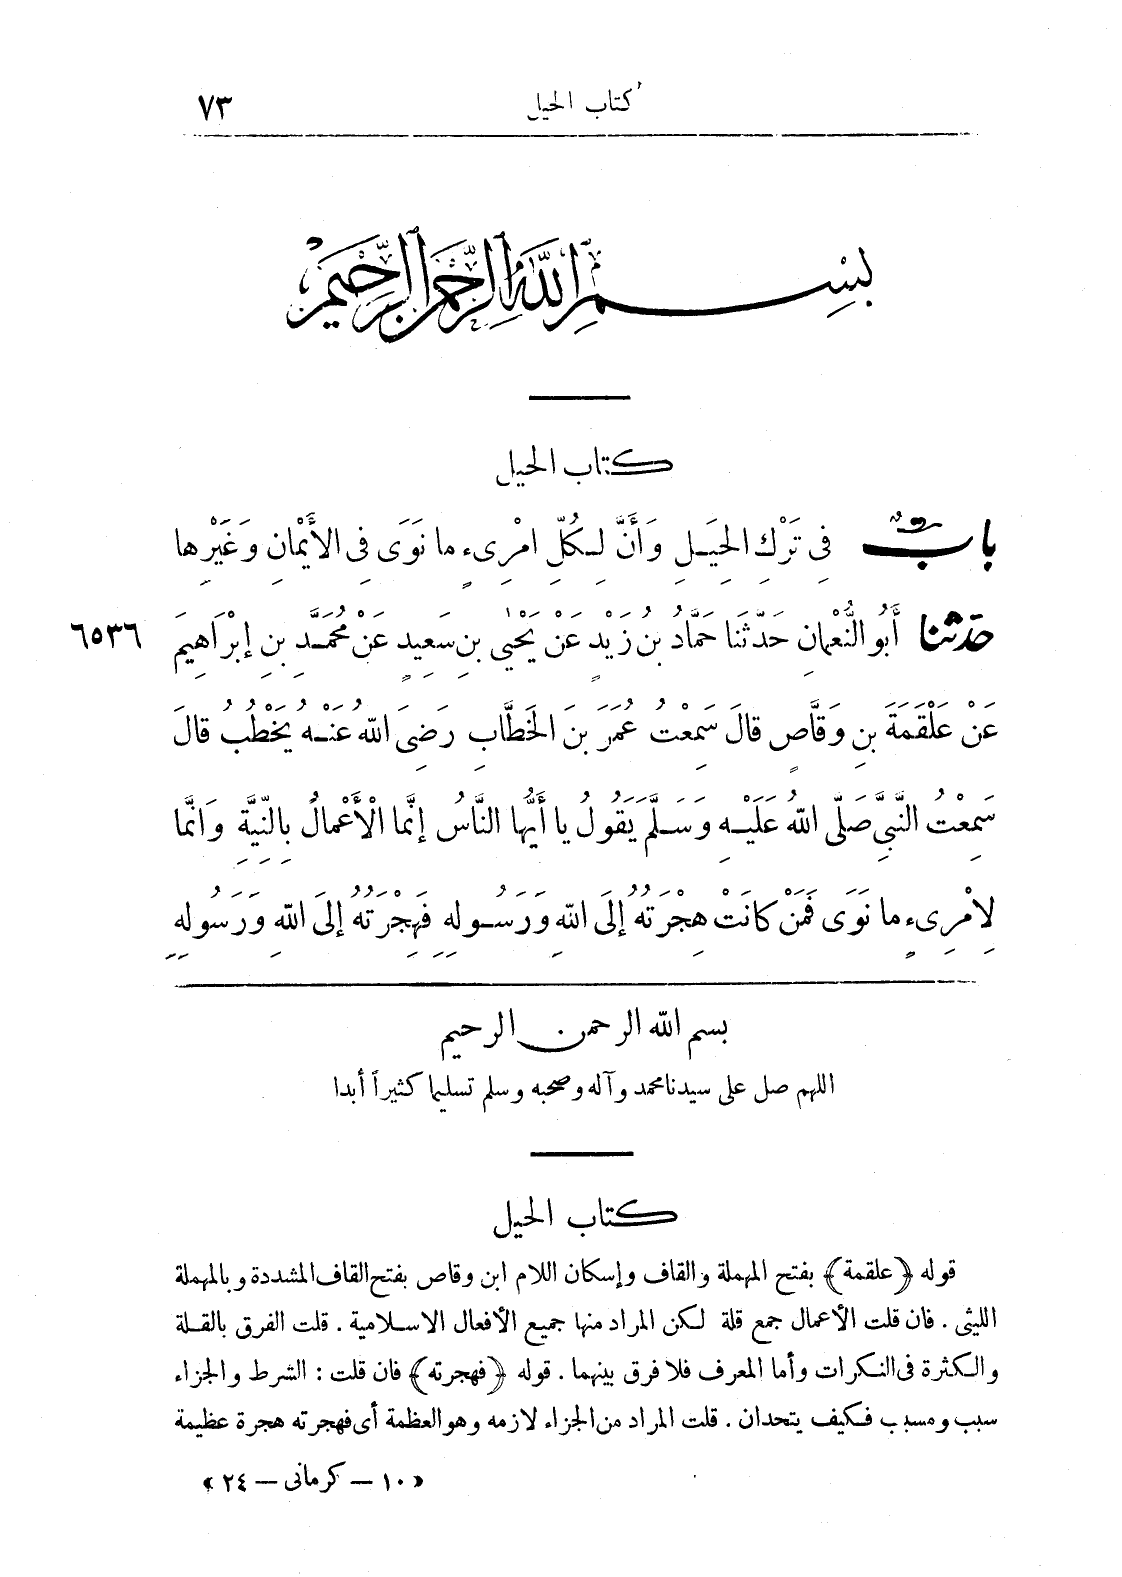 كتاب الحيل ٧٣
بِسْمِ اللَّهِ الرَّحْمَنِ الرَّحِيمِ
كتاب الحيل
بابٌ فِى تَرْكِ الحِيَلِ وَأَنَّ لِكُلِّ امْرِىءٍ ما نَوَى فِى الأَيْمانِ وَغَيْرِها
٦٥٣٦ حدثنا أَبُو النُّعْمانِ حَدَّثَنا حَمَّادُ بنُ زَيْدٍ عَنْ يَحْيٰى بنِ سَعِيدٍ عَنْ مُحَمَّدِ بنِ إبْرَاهِيمَ
عَنْ عَلْقَمَةَ بنِ وَقَّاصٍ قالَ سَمِعْتُ عُمَرَ بنَ الخَطَّابِ رَضِىَ اللهُ عَنْهُ يَخْطُبُ قالَ
سَمِعْتُ النَّبِىَّ صَلَّى اللهُ عَلَيْهِ وَسَلَّمَ يَقُولُ يا أَيُّها النَّاسُ إنَّما الْأَعْمالُ بِالنِّيَّةِ وَانَّما
لِامْرِىءٍ ما نَوَى فَمَنْ كانَتْ هِجْرَتُهُ إلَى اللهِ وَرَسُولِهِ فَهِجْرَتُهُ إلَى اللهِ وَرَسُولِهِ
بسم الله الرحمن الرحيم
اللهم صل على سيدنا محمد وآله وصحبه وسلم تسليما كثيراً أبدا
كتاب الحيل
قوله ﴿علقمة﴾ بفتح المهملة والقاف وإسكان اللام ابن وقاص بفتح القاف المشددة وبالمهملة
الليثى . فان قلت الأعمال جمع قلة لكن المراد منها جميع الأفعال الاسلامية . قلت الفرق بالقلة
والكثرة فى النكرات وأما المعرف فلا فرق بينهما . قوله ﴿فهجرته﴾ فان قلت : الشرط والجزاء
سبب ومسبب فكيف يتحدان . قلت المراد من الجزاء لازمه وهو العظمة أى فهجرته هجرة عظيمة
«١٠ – كرمانى – ٢٤»